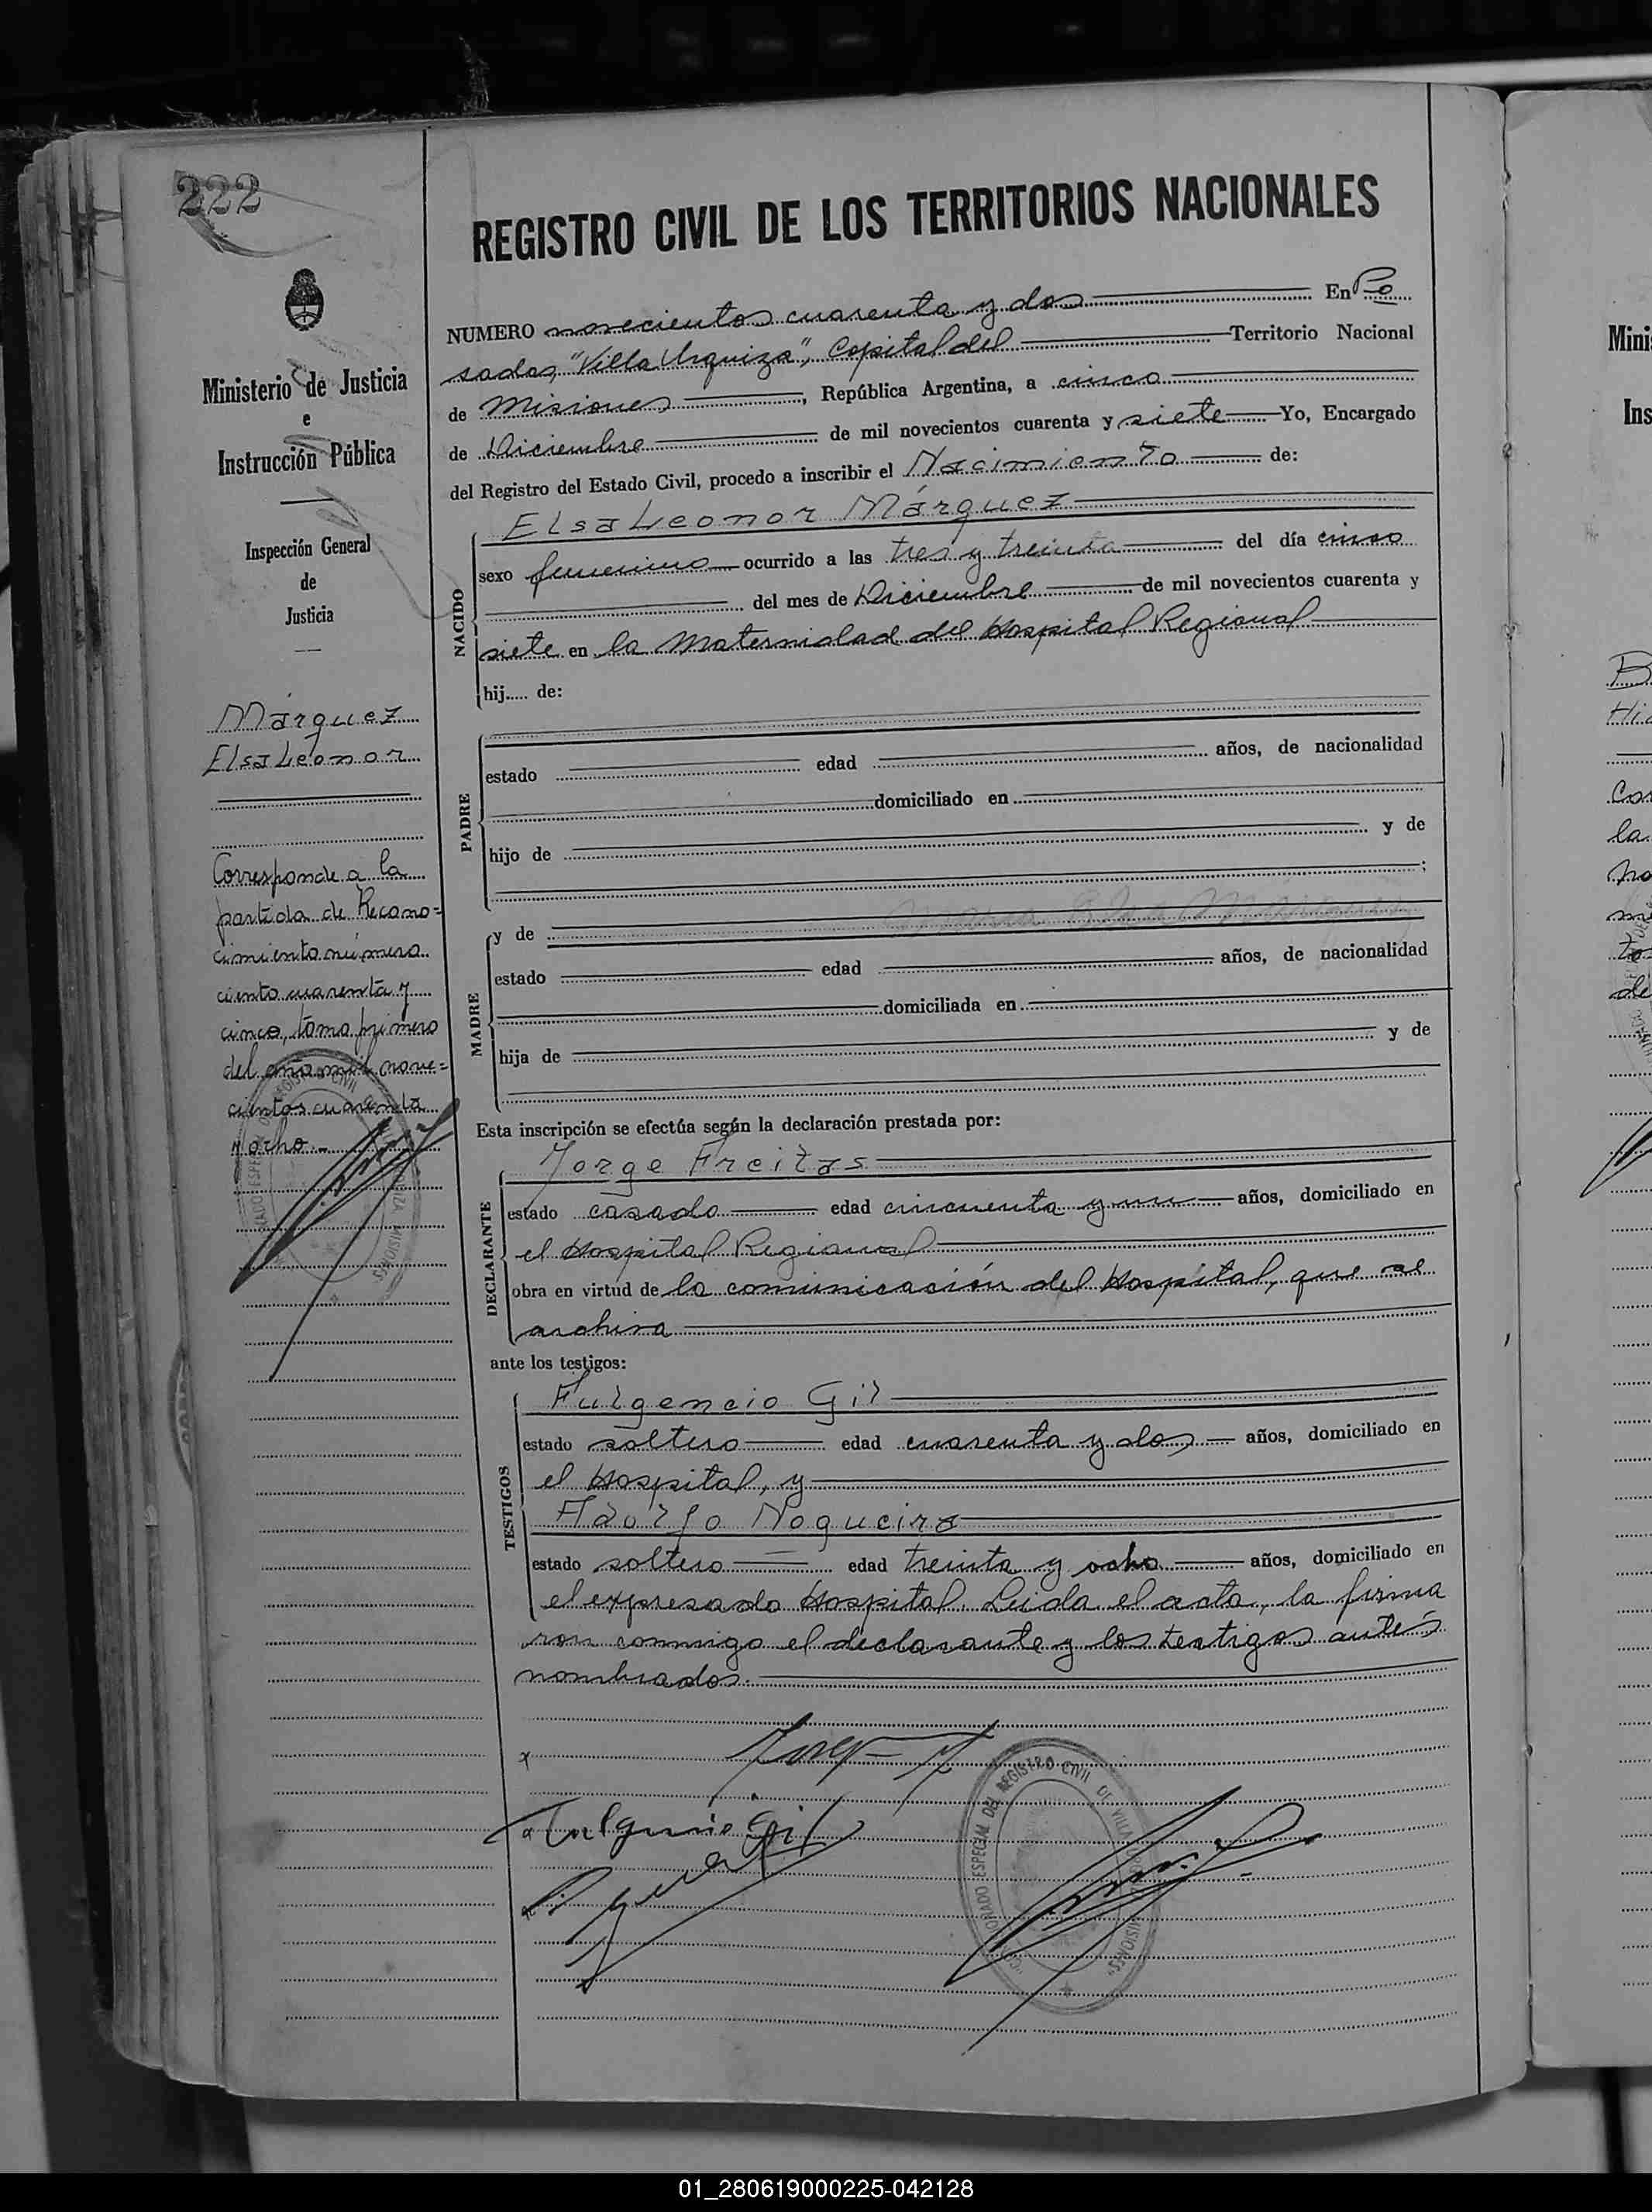 222
REGISTRO CIVIL DE LOS TERRITORIOS NACIONALES
Ministerio de Justicia
e
Instrucción Pública
Inspección General
de
Justicia
Márquez
Elsa Leonor
Corresponde a la
partida de Recono=
cimiento número
ciento cuarenta y
cinco, tomo primero
del año mil nove=
cientos cuarenta
y ocho.-
NUMERO novecientos cuarenta y dos En Po
sadas, "Villa Urquiza", Capital del Territorio Nacional
de Misiones, República Argentina, a cinco
de Diciembre de mil novecientos cuarenta y siete Yo, Encargado
del Registro del Estado Civil, procedo a inscribir el Nacimiento de:
NACIDO
Elsa Leonor Márquez
sexo femenino ocurrido a las tres y treinta del día cinco
del mes de Diciembre de mil novecientos cuarenta y
siete en la Maternidad del Hospital Regional
hij..... de:
PADRE
estado edad años, de nacionalidad
domiciliado en
hijo de y de
;
MADRE
y de
estado edad años, de nacionalidad
domiciliada en
hija de y de
Esta inscripción se efectúa según la declaración prestada por:
DECLARANTE
Jorge Freitas
estado casado edad cincuenta y un años, domiciliado en
el Hospital Regional
obra en virtud de la comunicación del Hospital, que se
archiva
ante los testigos:
TESTIGOS
Fulgencio Gil
estado soltero edad cuarenta y dos años, domiciliado en
el Hospital, y
Adolfo Nogueira
estado soltero edad treinta y ocho años, domiciliado en
el expresado Hospital. Leida el acta, la firma
ron conmigo el declarante y los testigos antes
nombrados.
Fulgencio Gil
ESPECIAL DEL REGISTRO CIVIL DE VILLA URQUIZA MISIONES
01_280619000225-042128